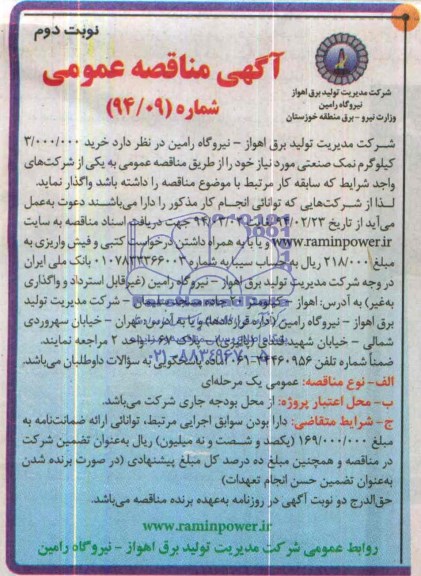 نوبت دوم
آگهی مناقصه عمومی
شماره (۹۴/۰۹)
شرکت مدیریت تولید برق اهواز
نیروگاه رامین
وزارت نیرو - برق منطقه خوزستان
شرکت مدیریت تولید برق اهواز - نیروگاه رامین در نظر دارد خرید ۳/۰۰۰/۰۰۰
کیلوگرم نمک صنعتی مورد نیاز خود را از طریق مناقصه عمومی به یکی از شرکت‌های
واجد شرایط که سابقه کار مرتبط با موضوع مناقصه را داشته باشد واگذار نماید.
لذا از شرکت‌هایی که توانائی انجام کار مذکور را دارا می‌باشند دعوت به‌عمل
می‌آید از تاریخ ۹۴/۰۲/۲۳ لغایت ۹۴/۰۳/۰۲ جهت دریافت اسناد مناقصه به سایت
www.raminpower.ir و یا با به همراه داشتن درخواست کتبی و فیش واریزی به
مبلغ ۲۱۸/۰۰۰ ریال به حساب سیبا به شماره ۰۱۰۷۸۳۳۳۶۶۰۰۳ بانک ملی ایران
در وجه شرکت مدیریت تولید برق اهواز - نیروگاه رامین (غیرقابل استرداد و واگذاری
به‌غیر) به آدرس: اهواز - کیلومتر ۲۰ جاده مسجد سلیمان - شرکت مدیریت تولید
برق اهواز - نیروگاه رامین (اداره قراردادها) و یا به آدرس: تهران - خیابان سهروردی
شمالی - خیابان شهید قندی (پالیزی) - پلاک ۶۷ - واحد ۲ مراجعه نمایند.
ضمناً شماره تلفن ۳۴۴۶۰۹۵۶-۰۶۱ آماده پاسخگویی به سؤالات داوطلبان می‌باشد.
الف- نوع مناقصه: عمومی یک مرحله‌ای
ب- محل اعتبار پروژه: از محل بودجه جاری شرکت می‌باشد.
ج- شرایط متقاضی: دارا بودن سوابق اجرایی مرتبط، توانائی ارائه ضمانت‌نامه به
مبلغ ۱۶۹/۰۰۰/۰۰۰ (یکصد و شصت و نه میلیون) ریال به‌عنوان تضمین شرکت
در مناقصه و همچنین مبلغ ده درصد کل مبلغ پیشنهادی (در صورت برنده شدن
به‌عنوان تضمین حسن انجام تعهدات)
حق‌الدرج دو نوبت آگهی در روزنامه به‌عهده برنده مناقصه می‌باشد.
www.raminpower.ir
روابط عمومی شرکت مدیریت تولید برق اهواز - نیروگاه رامین